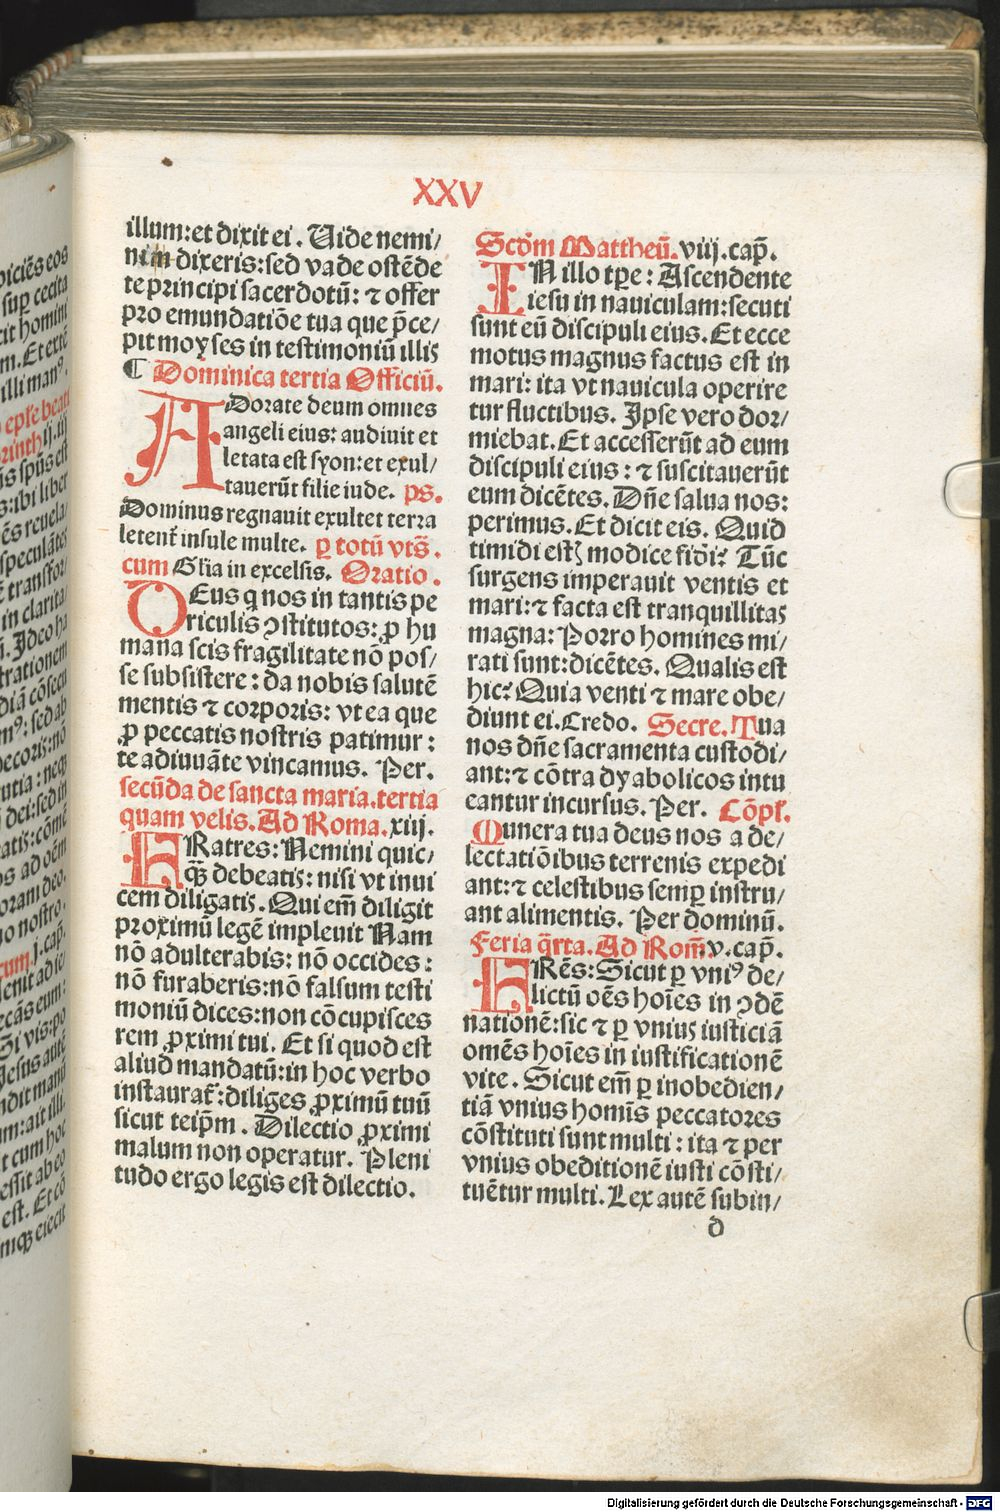 XXV
illum:et dixit ei. Uide nemi/
nim dixeris:sed vade ostēde
te principi sacerdotū: ⁊ offer
pro emundatiōe tua que p̄ce/
pit moyses in testimoniū illis
¶ Dominica tertia Officiū.
ADorate deum omnes
angeli eius: audiuit et
letata est syon:et exul/
tauerūt filie iude. ps.
Dominus regnauit exultet terra
letent᷑ insule multe. ꝑ totū vts̄.
cum Glīa in excelsis. Oratio.
DEus q nos in tantis pe
riculis ꝯstitutos: ꝓ hu
mana scis fragilitate nō pos/
se subsistere: da nobis salutē
mentis ⁊ corporis: vt ea que
ꝓ peccatis nostris patimur:
te adiuuāte vincamus. Per.
secūda de sancta maria.tertia
quam velis. Ad Roma. xiij.
FRatres: Nemini quic/
ꝙ̄ debeatis: nisi vt inui
cem diligatis. Qui em̄ diligit
proximū legē impleuit Nam
nō adulterabis: nō occides:
nō furaberis:nō falsum testi
moniū dices:non cōcupisces
rem ꝓximi tui. Et si quod est
aliud mandatū:in hoc verbo
instaurat᷑:diliges ꝓximū tuū
sicut teip̄m. Dilectio ꝓximi
malum non operatur. Pleni
tudo ergo legis est dilectio.
Scd̄m Mattheū. viij. cap̄.
IN illo tp̄e: Ascendente
iesu in nauiculam:secuti
sunt eū discipuli eius. Et ecce
motus magnus factus est in
mari: ita vt nauicula operire
tur fluctibus. Ipse vero dor/
miebat. Et accesserūt ad eum
discipuli eius: ⁊ suscitauerūt
eum dicētes. Dn̄e salua nos:
perimus. Et dicit eis. Quid
timidi estꝫ modice fidei? Tūc
surgens imperauit ventis et
mari:⁊ facta est tranquillitas
magna: Porro homines mi/
rati sunt:dicētes. Qualis est
hic? Quia venti ⁊ mare obe/
diunt ei. Credo. Secre. Tua
nos dn̄e sacramenta custodi/
ant:⁊ cōtra dyabolicos intu
eantur incursus. Per. Cōpl̄.
Munera tua deus nos a de/
lectatiōibus terrenis expedi
ant:⁊ celestibus semꝑ instru/
ant alimentis. Per dominū.
Feria q̄rta. Ad Rom̄. v. cap̄.
FRēs: Sicut ꝑ vniꝰ de/
lictū oēs hoīes in ꝯdē
nationē:sic ⁊ ꝑ vnius iusticiā
omēs hoīes in iustificationē
vite. Sicut em̄ ꝑ inobedien/
tiā vnius homīs peccatores
cōstituti sunt multi: ita ⁊ per
vnius obeditionē iusti cōsti/
tuētur multi. Lex autē subin/
d
Digitalisierung gefördert durch die Deutsche Forschungsgemeinschaft - DFG